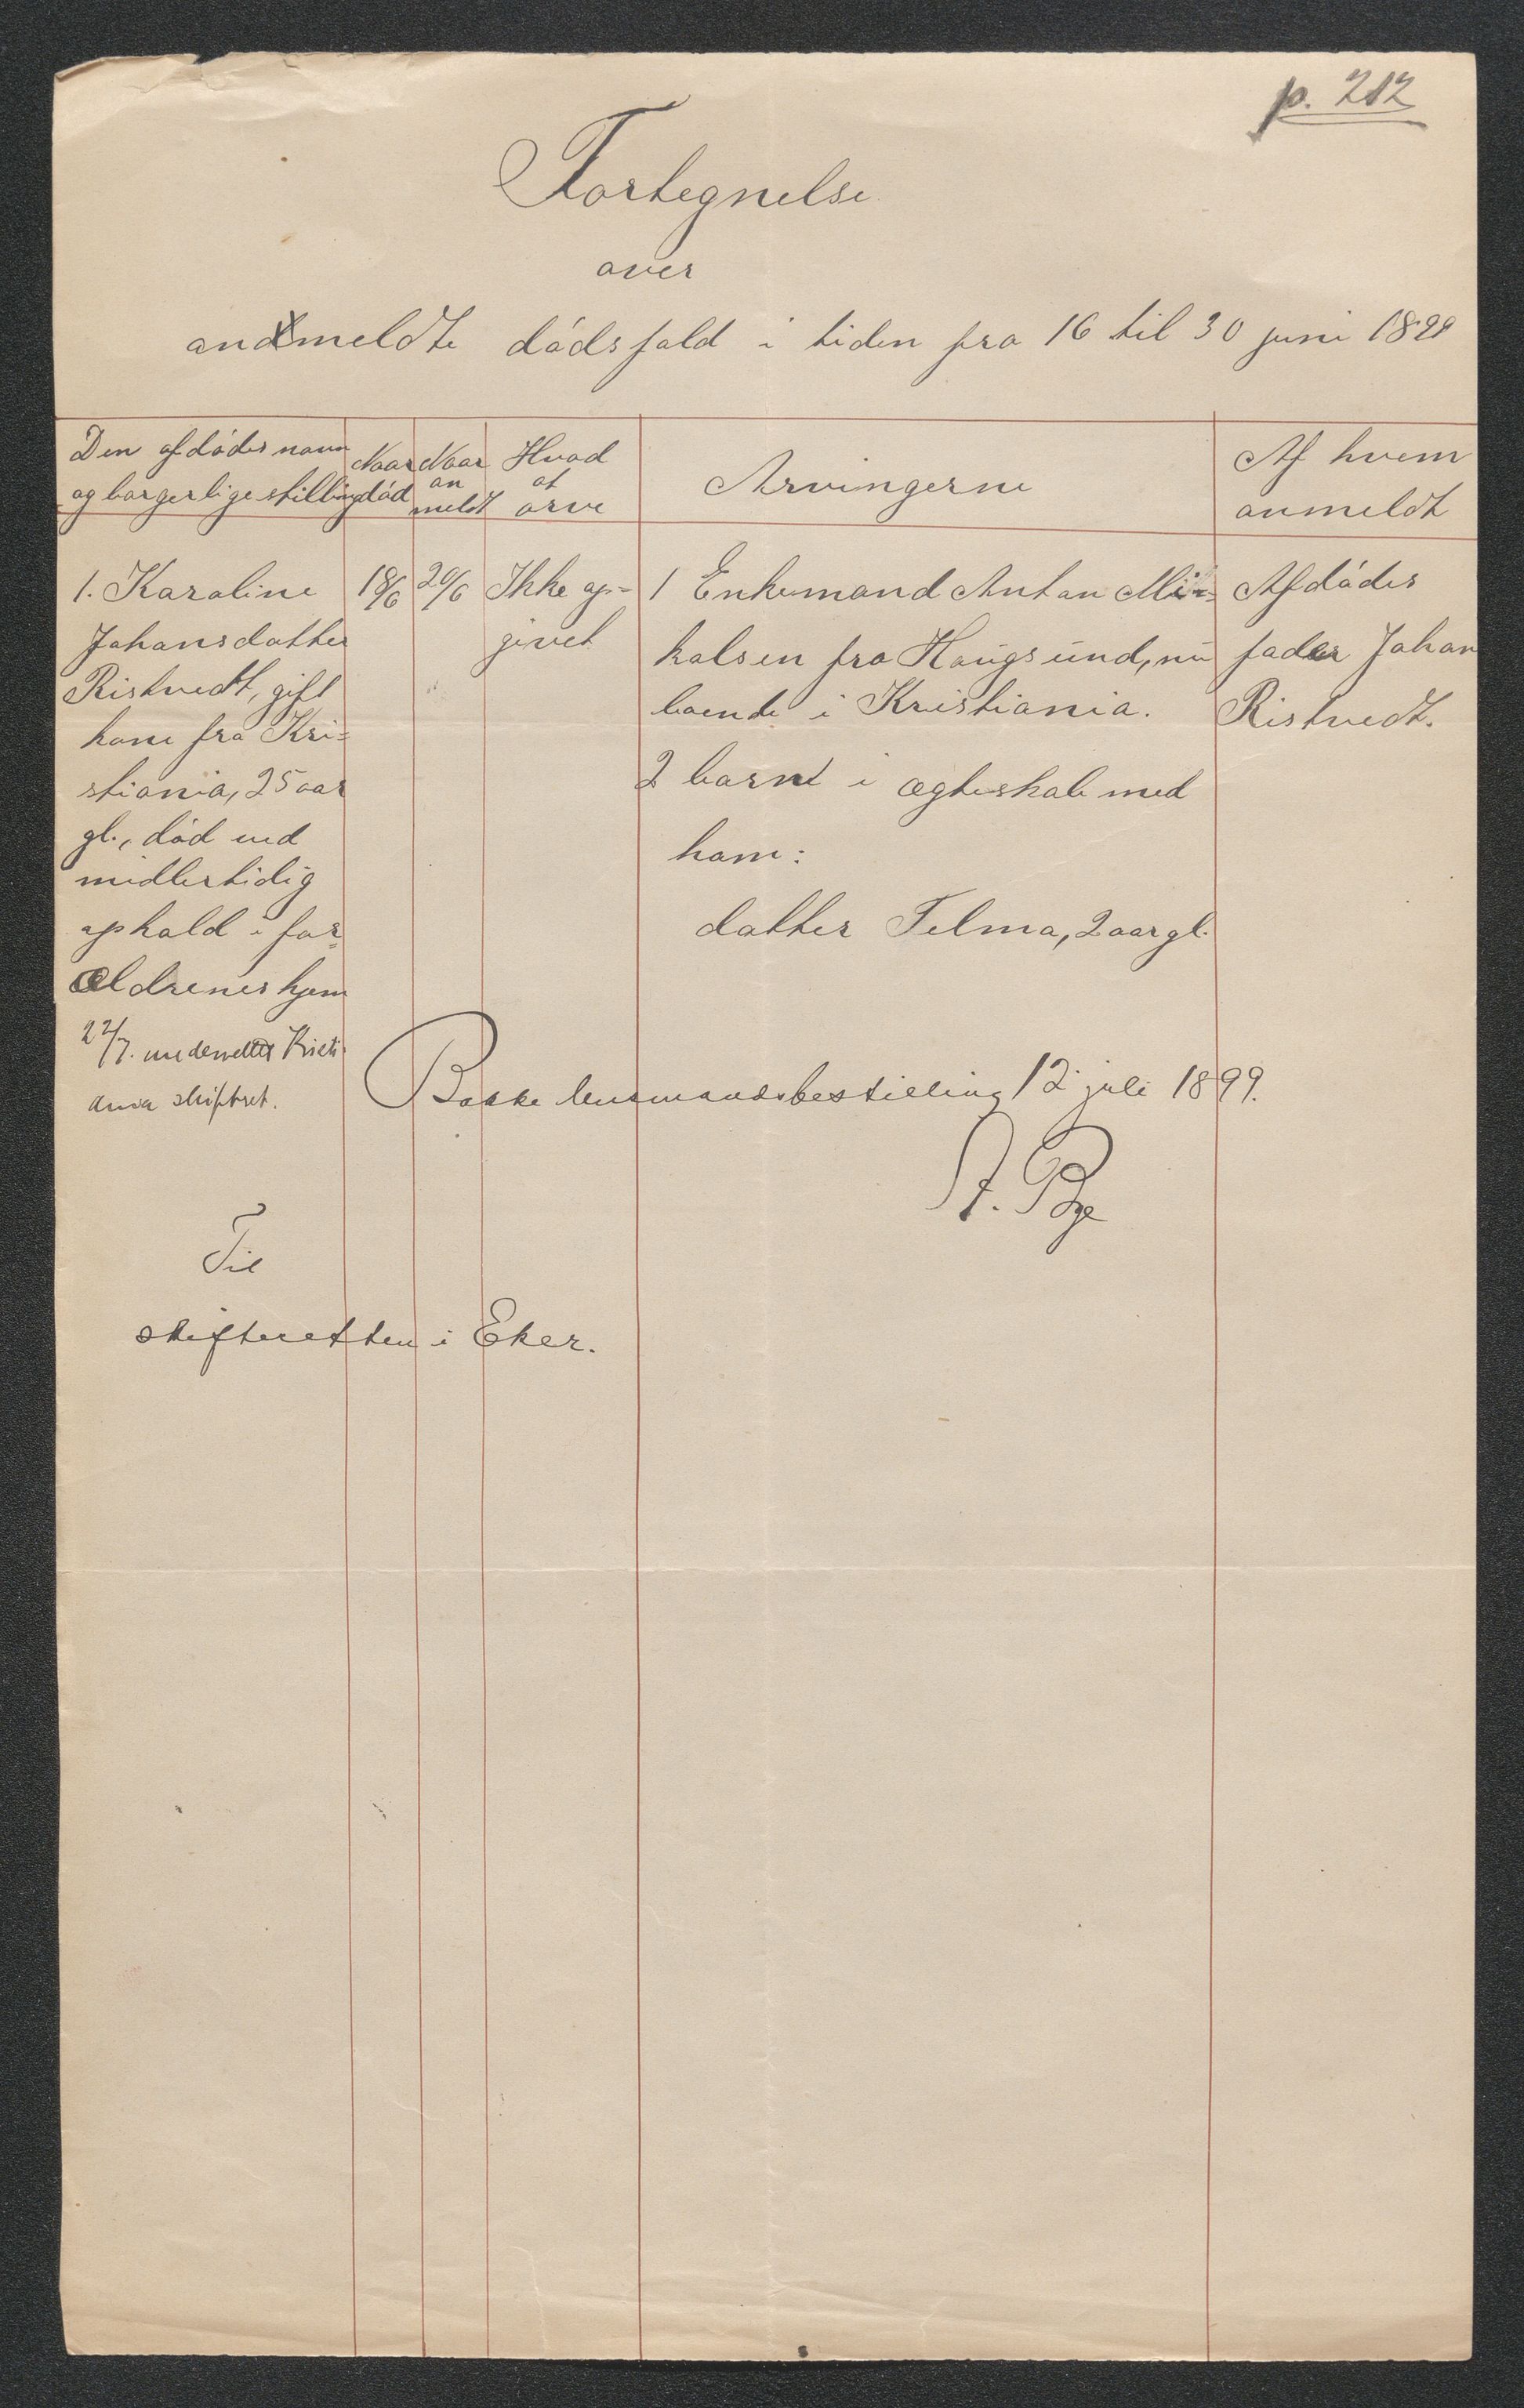 p. 212
Fortegnelse
over
anmeldte dødsfald i tiden fra 16 til 30 juni 1899
Den afdødes navn
og borgerlige stilling
Naar
død
Naar
an
meldt
Hvad
at
arve
Arvingerne
Af hvem
anmeldt
1. Karoline
Johansdatter
Ristvedt, gift
kone fra Kri=
stiania, 25 aar
gl., død ved
midlertidig
ophold i for=
ældrenes hjem
18/6
20/6
Ikke op=
givet
1 Enkemand Anton Mi=
kalsen fra Hougsund, nu
boende i Kristiania.
2 barn i ægteskab med
ham:
datter Telma, 2 aar gl.
Afdødes
fader Johan
Ristvedt.
22/7. underrettet Kristi
ania skifteret.
Bakke lensmandsbestilling 12 juli 1899.
Til
skifteretten i Eker.